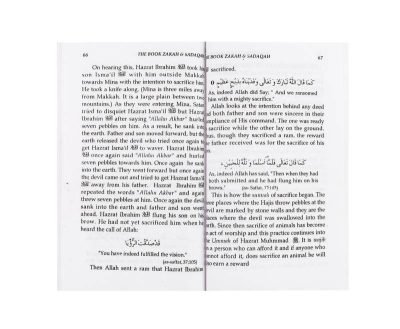 66
THE BOOK ZAKAH & SADAQAH
On hearing this, Hazrat Ibrahim ﷺ took
son Isma'il ﷺ with him outside Makkah
towards Mina with the intention to sacrifice him.
He took a knife along. (Mina is three miles away
from Makkah. It is a large plain between two
mountains.) As they were entering Mina, Satan
tried to disquiet Hazrat Ismail ﷺ but Hazrat
Ibrahim ﷺ after saying "Allahu Akbar" hurled
seven pebbles on him. As a result, he sank into
the earth. Father and son moved forward, but the
earth released the devil who tried once again to
get Hazrat Isma'il to waver. Hazrat Ibrahim
once again said "Allahu Akbar" and hurled
seven pebbles towards him. Once again he sank
into the earth. They went forward but once again
the devil came out and tried to get Hazrat Isma'il
away from his father. Hazrat Ibrahim
repeated the words "Allahu Akbar" and again
threw seven pebbles at him. Once again the devil
sank into the earth and father and son went
ahead. Hazrat Ibrahim flung his son on his
brow. He had not yet sacrificed him when he
heard the call of Allah:
قَدْ صَدَّقْتَ الرُّؤْيَا
"You have indeed fulfilled the vision."
(as-saffat, 37:105)
Then Allah sent a ram that Hazrat Ibrahim
THE BOOK ZAKAH & SADAQAH
67
sacrificed.
كَمَا قَالَ اللَّهُ تَبَارَكَ وَ تَعَالَى وَفَدَيْنَاهُ بِذِبْحٍ عَظِيمٍ
As, indeed Allah did Say; " And we ransomed
him with a mighty sacrifice."
Allah looks at the intention behind any deed
and both father and son were sincere in their
compliance of His command. The one was ready
to sacrifice while the other lay on the ground,
thus, though they sacrificed a ram, the reward
the father received was for the sacrifice of his
son.
كَمَا قَالَ تَعَالَى فَلَمَّا أَسْلَمَا وَ تَلَّهُ لِلْجَبِينِ
As, indeed Allah has said, "Then when they had
both submitted and he had flung him on his
brow," (as-Saffat, 37:103)
This is how the sunnah of sacrifice began. The
three places where the Hajis throw pebbles at the
devil are marked by stone walls and they are the
places where the devil was swallowed into the
earth. Since then sacrifice of animals has become
an act of worship and this practice continues into
the Ummah of Hazrat Muhammad. It is wajib
on a person who can afford it and if anyone who
cannot afford it, does sacrifice an animal he will
also earn a reward